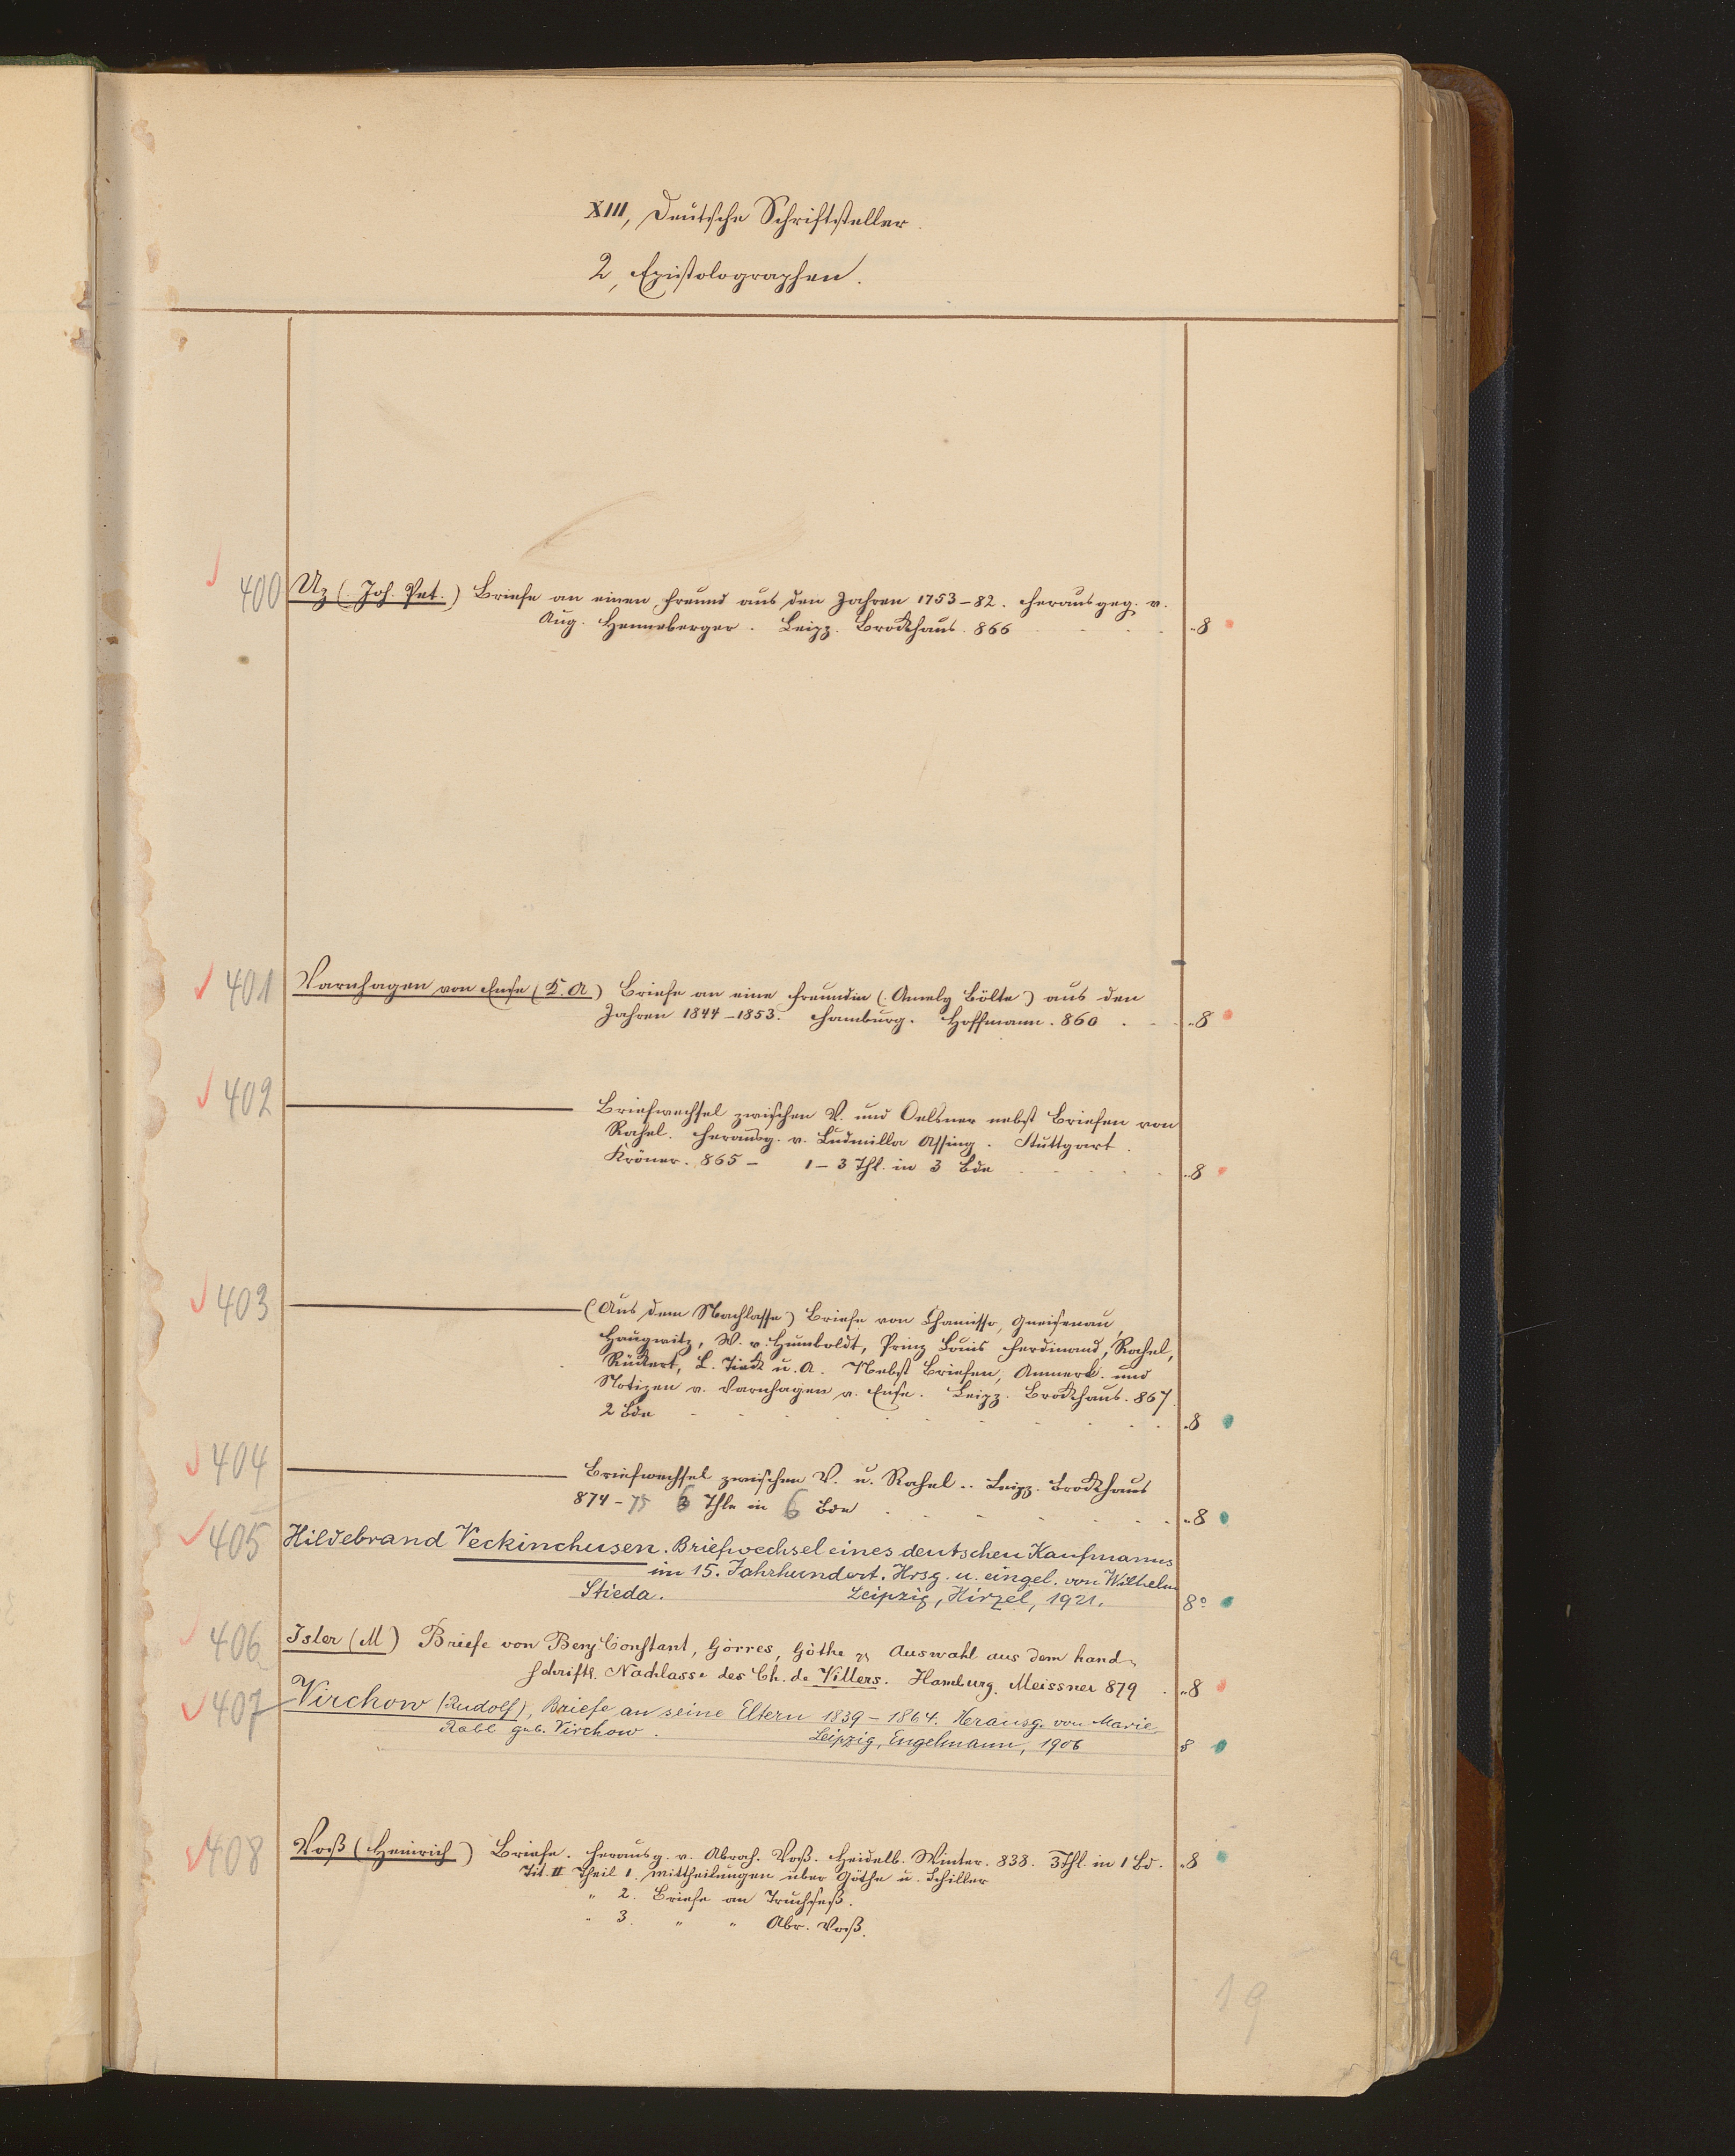 XIII, Deutsche Schriftsteller.
2, Epistolographen.
400 Uz (Joh. Pet.) Briefe an einen Freund aus den Jahren 1753–82. Herausgeg. v.
Aug. Henneberger. Leipz. Brockhaus. 866 . . . . 8
401 Varnhagen von Ense (K. A.) Briefe an eine Freundin (Amely Bölte) aus den
Jahren 1844–1853. Hamburg. Hoffmann. 860 . . . 8
402 ——— Briefwechsel zwischen V. und Oelsner nebst Briefen von
Rahel. Herausg. v. Ludmilla Assing. Stuttgart.
Kröner. 865– 1–3 Thl. in 3 Bde . . . . 8
403 ——— (Aus dem Nachlasse) Briefe von Chamisso, Gneisenau,
Haugwitz, W. v. Humboldt, Prinz Louis Ferdinand, Rahel,
Rückert, L. Tieck u. A. Nebst Briefen, Anmerk. und
Notizen v. Varnhagen v. Ense. Leipz. Brockhaus. 867.
2 Bde . . . . . . . . . 8
404 ——— Briefwechsel zwischen V. u. Rahel .. Leipz. Brockhaus
874–75 6 Thle in 6 Bde . . . . . . 8
405 Hildebrand Veckinchusen. Briefwechsel eines deutschen Kaufmanns
im 15. Jahrhundert. Hrsg. u. eingel. von Wilhelm
Stieda. Leipzig, Hirzel, 1921. 8°
406 Isler (M) Briefe von Benj. Constant, Görres, Göthe Auswahl aus dem hand-
schriftl. Nachlasse des Ch. de Villers. Hamburg. Meissner 879 . 8
407 Virchow (Rudolf), Briefe an seine Eltern 1839–1864. Herausg. von Marie
Rabl geb. Virchow. Leipzig, Engelmann, 1906 8
408 Voß (Heinrich) Briefe. Herausg. v. Abrah. Voß. Heidelb. Winter. 838. 3 Thl. in 1 Bd. 8
Tit. II Theil 1. Mittheilungen über Göthe u. Schiller
" 2. Briefe an Truchseß.
" 3. " " Abr. Voß.
19